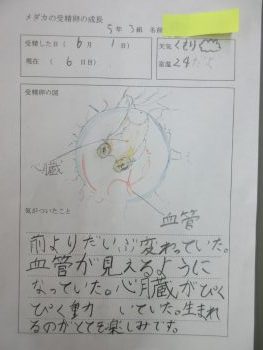 メダカの受精卵の成長
5年 3組 名前
受精した日( 6月 1日)
天気 くもり
現在( 6日目)
室温 24
受精卵の図
心臓
血管
気がついたこと
前よりだいぶ変わっていた。
血管が見えるように
なっていた。心臓がぴく
ぴく動いていた。生まれ
るのがとても楽しみです。